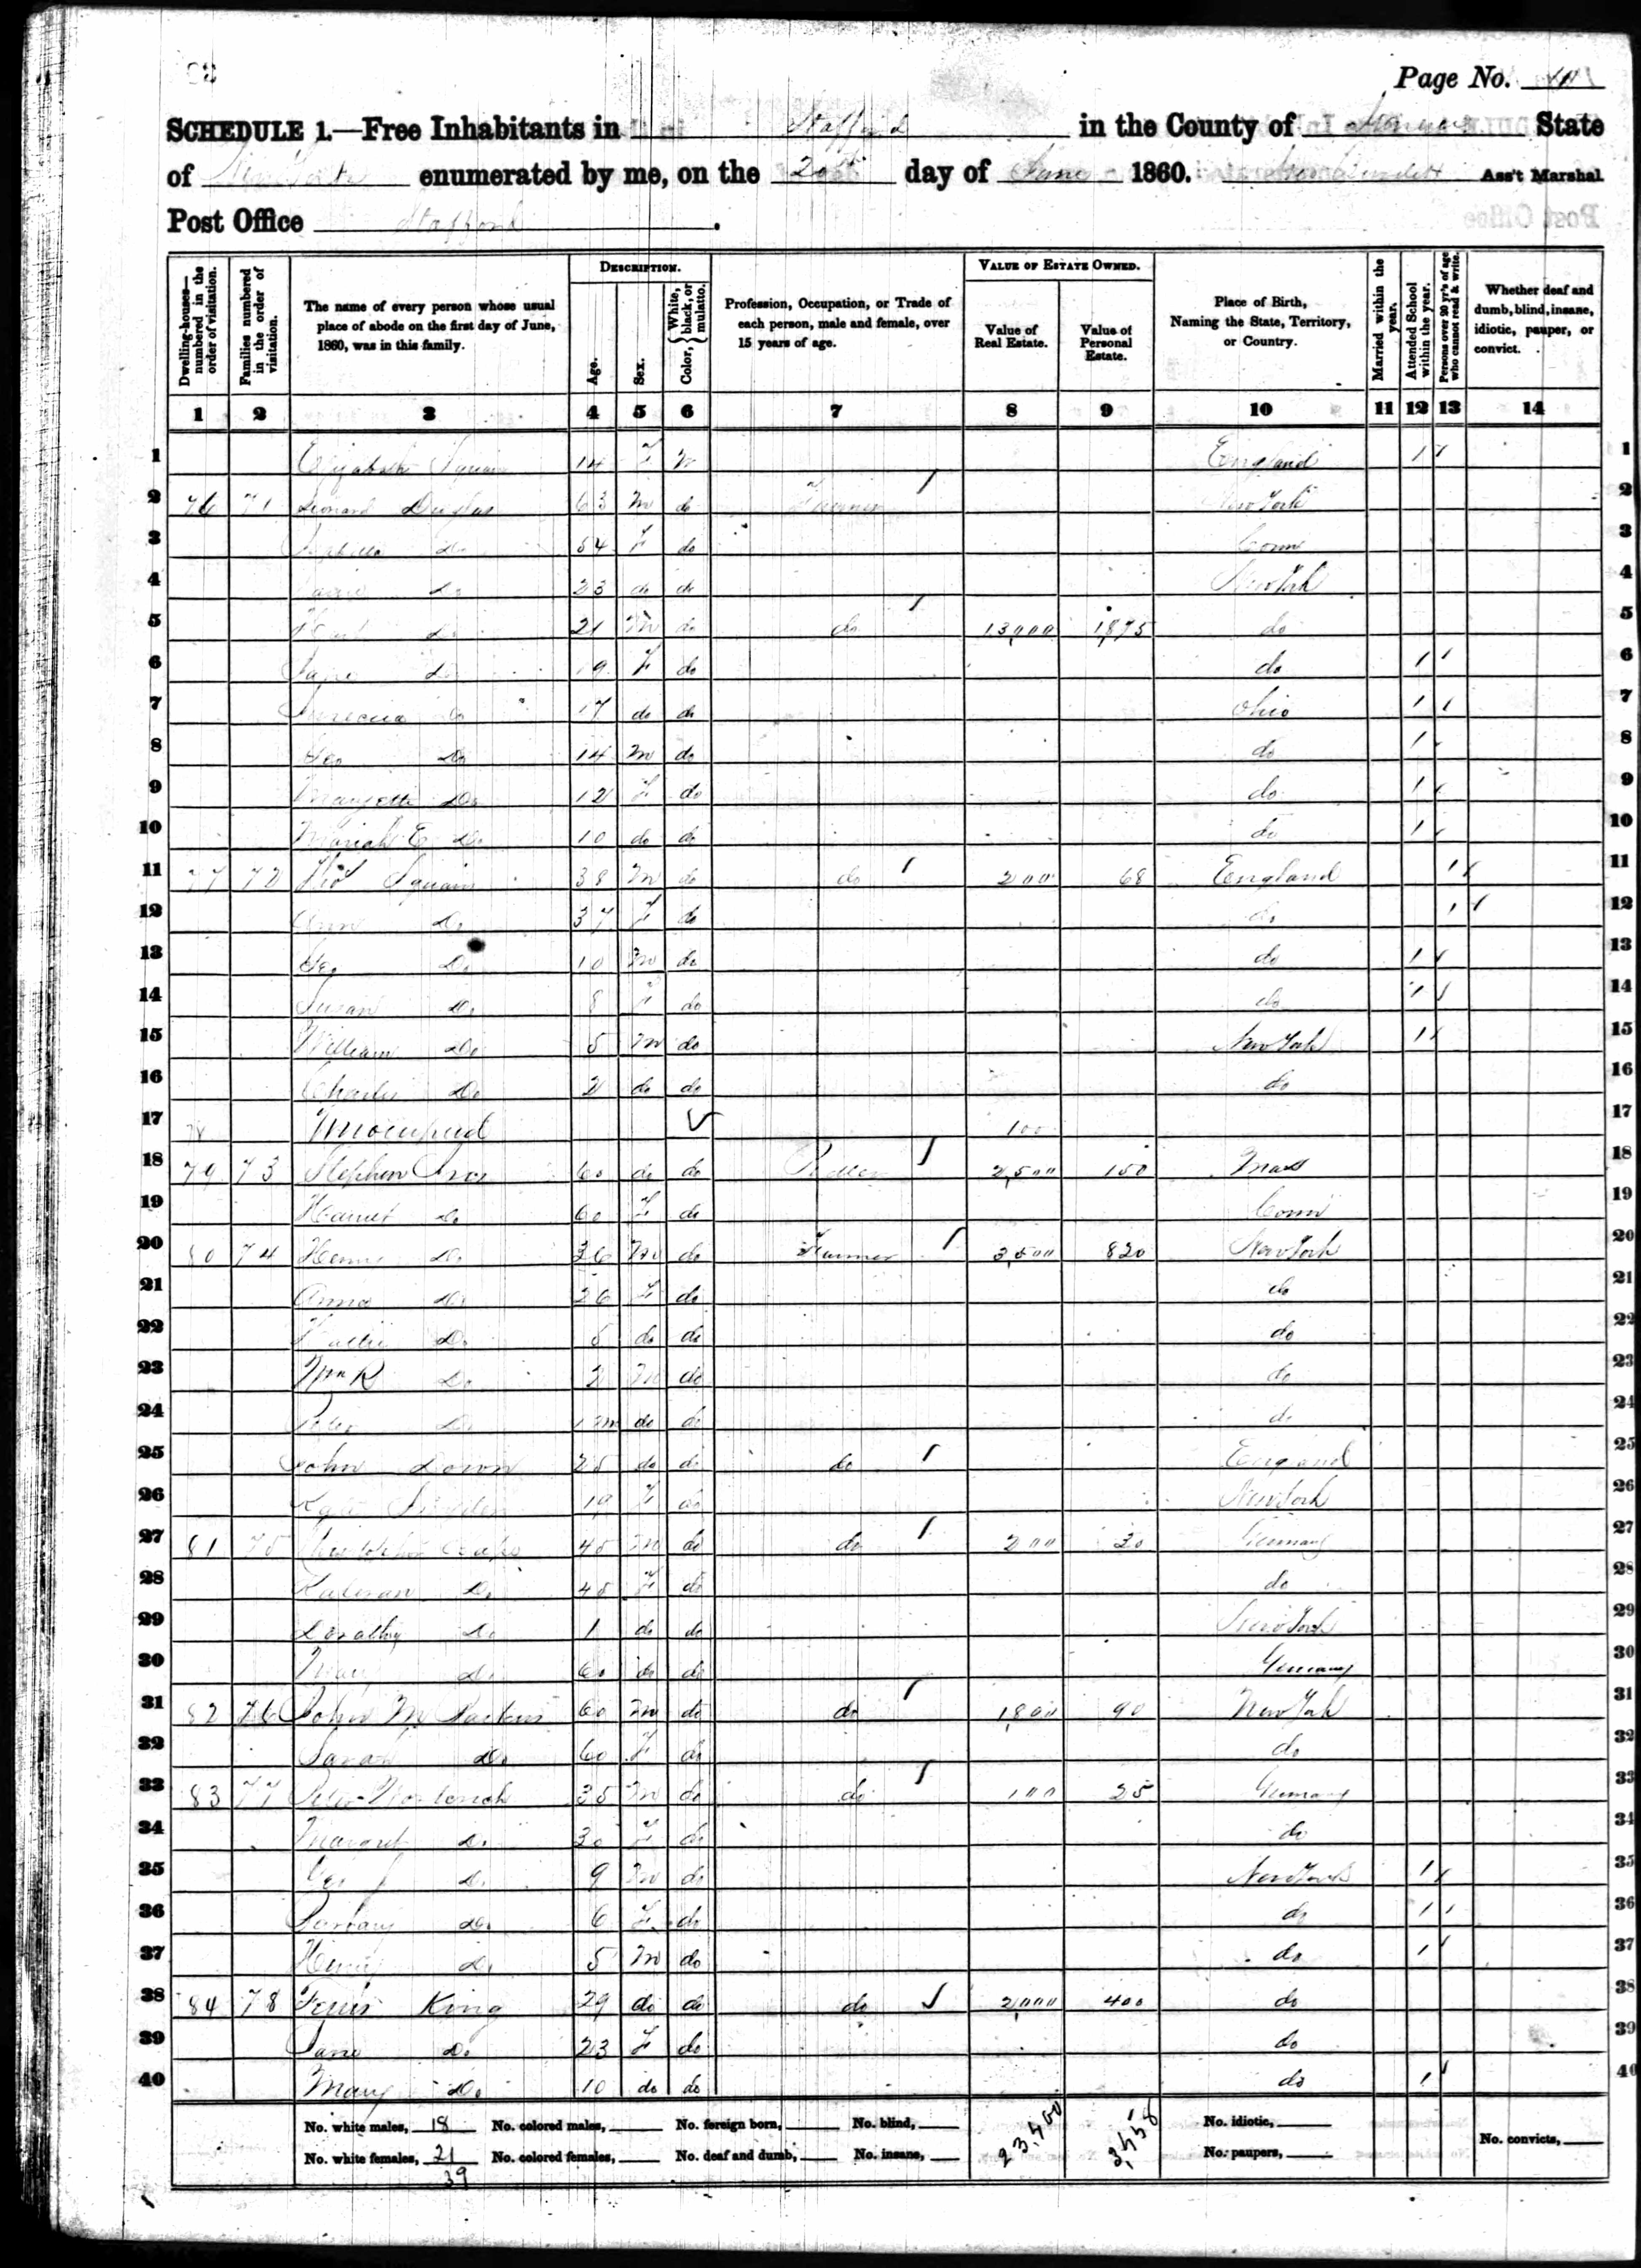 Page No.
SCHEDULE 1.—Free Inhabitants in Stafford in the County of Genesee State
of New York enumerated by me, on the 20th day of June 1860. Ass't Marshal.
Post Office Stafford.
Dwelling-houses—numbered in the order of visitation.
Families numbered in the order of visitation.
The name of every person whose usual place of abode on the first day of June, 1860, was in this family.
DESCRIPTION.
Age.
Sex.
Color, {White, black, or mulatto.
Profession, Occupation, or Trade of each person, male and female, over 15 years of age.
VALUE OF ESTATE OWNED.
Value of Real Estate.
Value of Personal Estate.
Place of Birth, Naming the State, Territory, or Country.
Married within the year.
Attended School within the year.
Persons over 20 yr's of age who cannot read & write.
Whether deaf and dumb, blind, insane, idiotic, pauper, or convict.
1 2 3 4 5 6 7 8 9 10 11 12 13 14
1 Elizabeth Squair 14 F W England 1 1
2 76 71 Leonard Douglas 63 m do Farmer New York 2
3 Do 54 F do Conn 3
4 Do 23 do do New York 4
5 Do 21 m do do 13,000 1,875 do 5
6 Jane Do 19 F do do 1 6
7 Do 17 do do Ohio 1 7
8 Geo Do 14 m do do 1 8
9 Do 12 F do do 1 9
10 Mariah E Do 10 do do do 1 10
11 77 72 Tho' Squair 38 m do do 200 68 England 1 11
12 Ann Do 37 F do do 1 12
13 Geo Do 10 m do do 1 13
14 Susan Do 8 F do do 1 14
15 William Do 5 m do New York 1 15
16 Charles Do 2 do do do 16
17 78 Unoccupied 100 17
18 79 73 Stephen 60 do do Pedler 2,500 150 Mass 18
19 Harriet Do 60 F do Conn 19
20 80 74 Henry Do 36 m do Farmer 3,500 820 New York 20
21 Anna Do 26 F do do 21
22 Do 5 do do do 22
23 Wm R Do 2 m do do 23
24 Peter Do do do do 24
25 John Down 25 do do do England 25
26 Kate 19 F do New York 26
27 81 75 45 m do do 200 30 Germany 27
28 Do 45 F do do 28
29 Dorathy Do 1 do do New York 29
30 Mary Do 60 do do Germany 30
31 82 76 John M 60 m do do 1,800 90 New York 31
32 Sarah Do 60 F do do 32
33 83 77 Peter 35 m do do 100 25 Germany 33
34 Margret Do 30 F do do 34
35 Do 9 m do New York 1 35
36 Barbary Do 6 F do do 1 36
37 Henry Do 5 m do do 1 37
38 84 78 King 29 do do do 2,000 400 do 38
39 Jane Do 23 F do do 39
40 Mary Do 10 do do do 1 40
No. white males, 18 No. colored males, No. foreign born, No. blind, 23,400 3,458 No. idiotic,
No. white females, 21 No. colored females, No. deaf and dumb, No. insane, No. paupers, No. convicts,
39